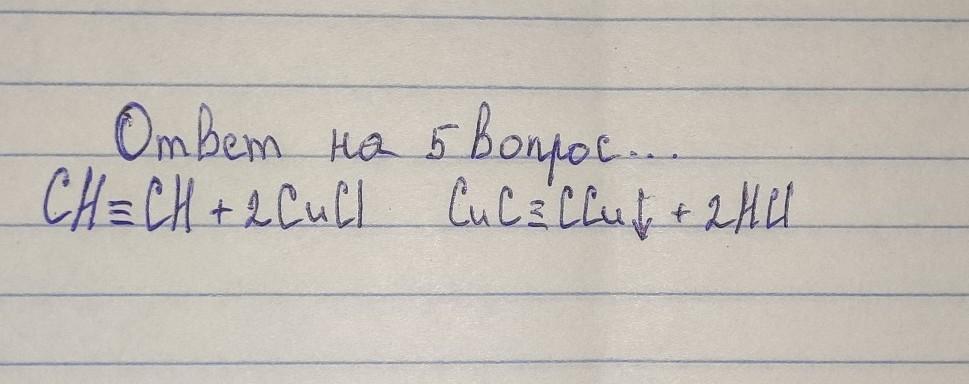 Ответ на 5 вопрос...
CH≡CH + 2CuCl CuC≡CCu↓ + 2HCl